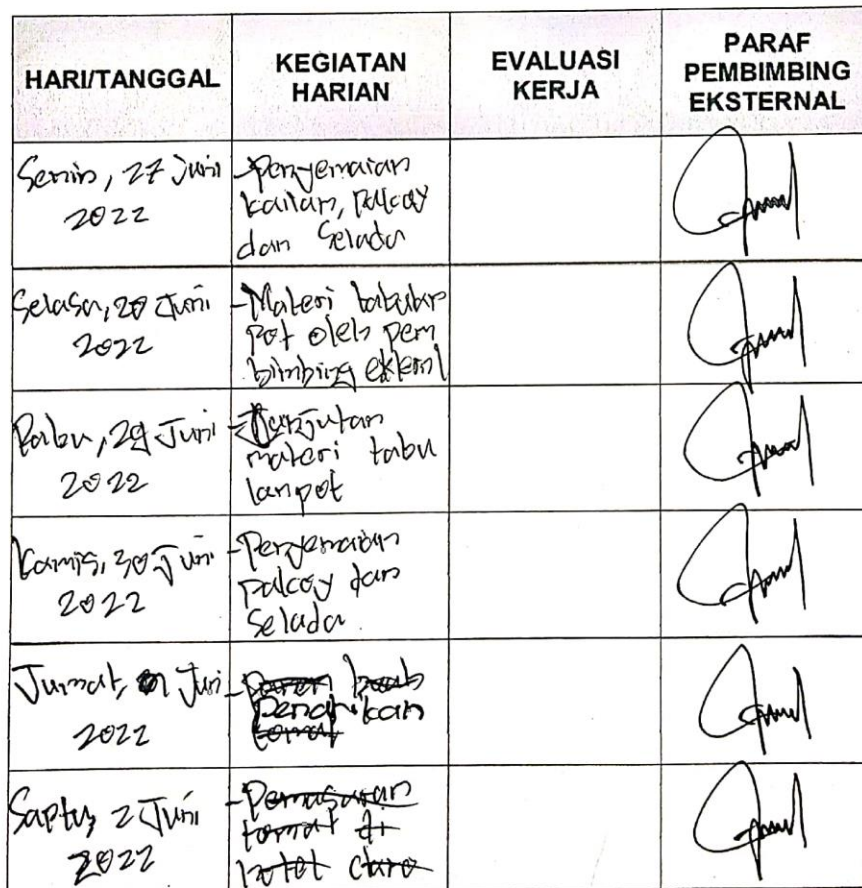 HARI/TANGGAL
KEGIATAN
HARIAN
EVALUASI
KERJA
PARAF
PEMBIMBING
EKSTERNAL
Senin, 27 Juni
2022
-Penyemaian
kailan, Pakcoy
dan Selada
Selasa, 28 Juni
2022
-Materi tabulam
pot oleh pem
bimbing
Rabu, 29 Juni
2022
materi tabu
lampot
Kamis, 30 Juni
2022
-Penyemaian
pakcoy dan
Selada
Jumat, Juni
2022
-Panen buah
tomat
Saptu, 2 Juni
2022
-Pemasaran
tomat di
hotel claro